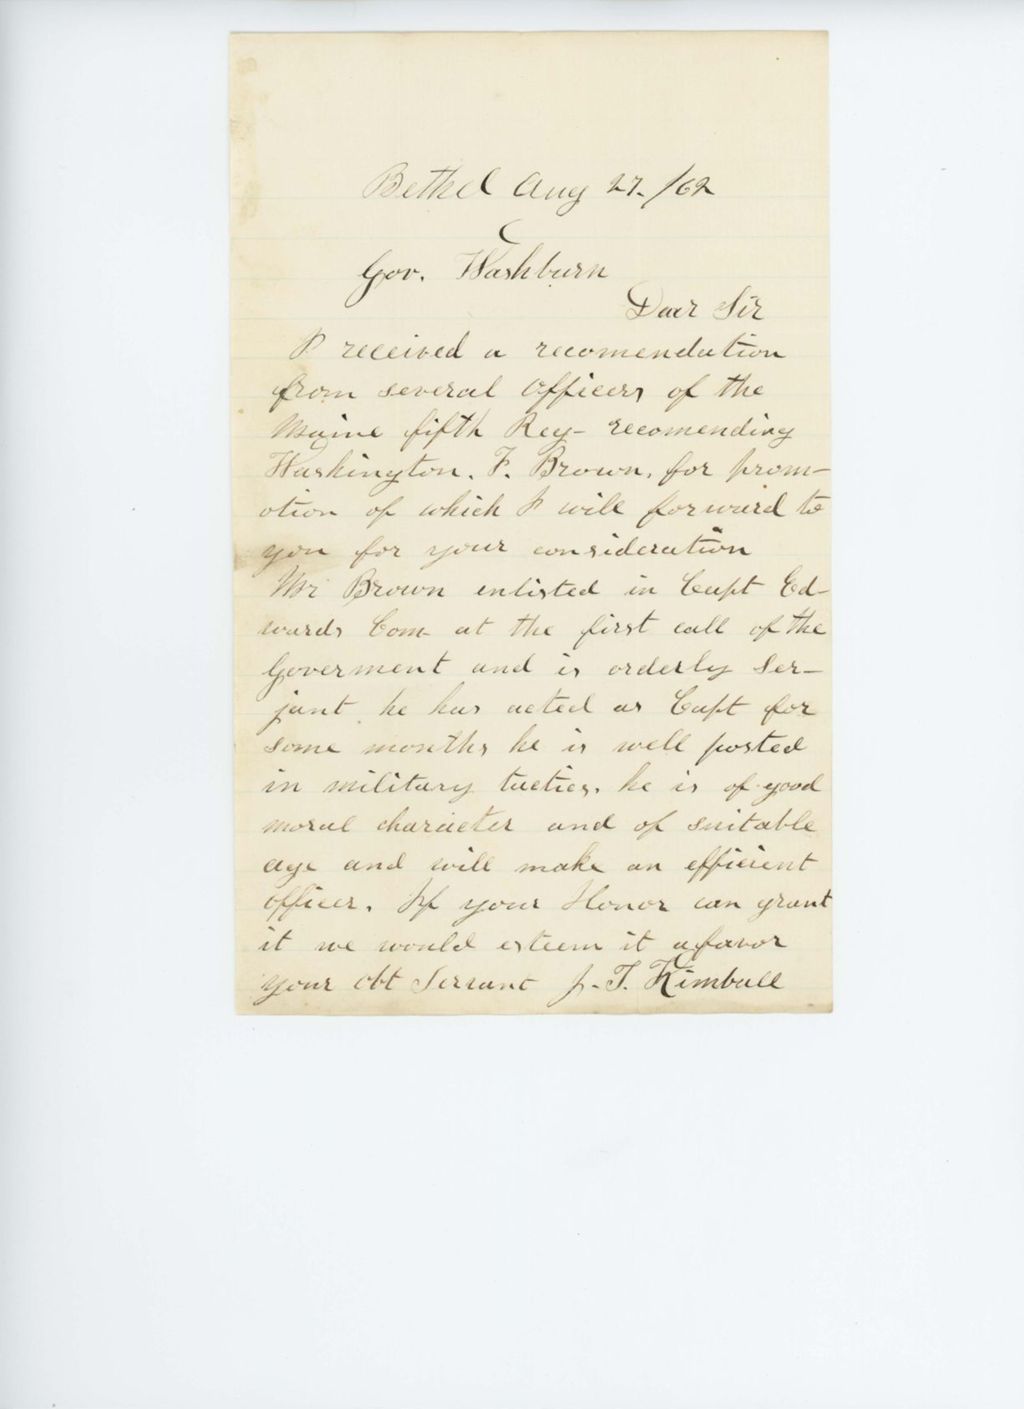 Bethel Aug 27. /62
Gov. Washburn
Dear Sir
I received a recomendation
from several Officers of the
Maine fifth Reg- recomending
Washington. F. Brown, for prom-
otion of which I will forward to
you for your consideration
Mr Brown enlisted in Capt Ed-
wards Com- at the first call of the
Goverment and is orderly Ser-
jant he has acted as Capt for
some months he is well posted
in military tactics, he is of good
moral character and of suitable
age and will make an efficient
officer. If your Honor can grant
it we would esteem it a favor
your obt Servant J. T. Kimball